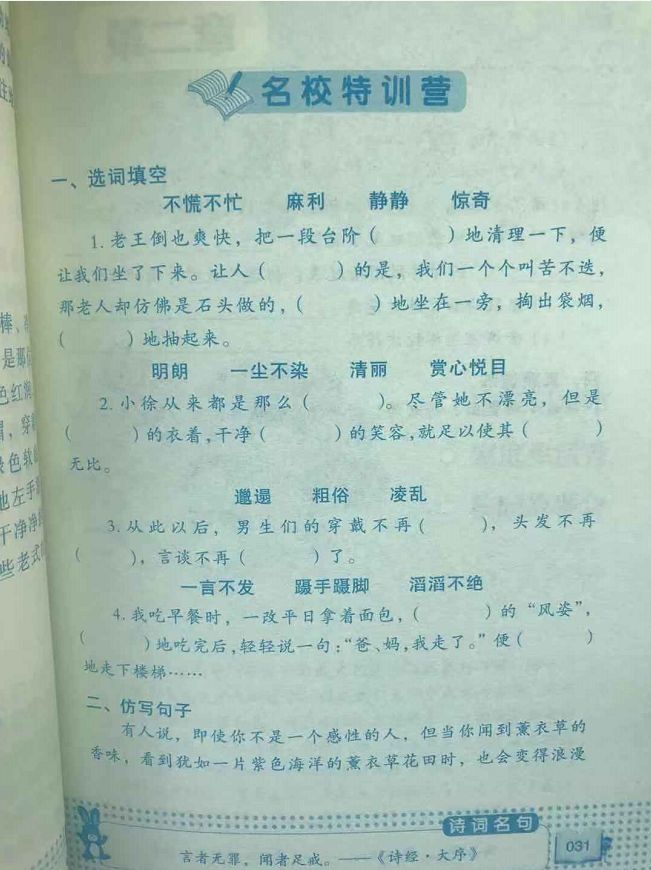 名校特训营
一、选词填空
不慌不忙 麻利 静静 惊奇
1.老王倒也爽快，把一段台阶（ ）地清理一下，便
让我们坐了下来。让人（ ）的是，我们一个个叫苦不迭，
那老人却仿佛是石头做的，（ ）地坐在一旁，掏出袋烟，
（ ）地抽起来。
明朗 一尘不染 清丽 赏心悦目
2.小徐从来都是那么（ ）。尽管她不漂亮，但是
（ ）的衣着，干净（ ）的笑容，就足以使其（ ）
无比。
邋遢 粗俗 凌乱
3.从此以后，男生们的穿戴不再（ ），头发不再
（ ），言谈不再（ ）了。
一言不发 蹑手蹑脚 滔滔不绝
4.我吃早餐时，一改平日拿着面包，（ ）的“风姿”，
（ ）地吃完后，轻轻说一句：“爸、妈，我走了。”便（ ）
地走下楼梯……
二、仿写句子
有人说，即使你不是一个感性的人，但当你闻到薰衣草的
香味，看到犹如一片紫色海洋的薰衣草花田时，也会变得浪漫
诗词名句
言者无罪，闻者足戒。——《诗经·大序》
031